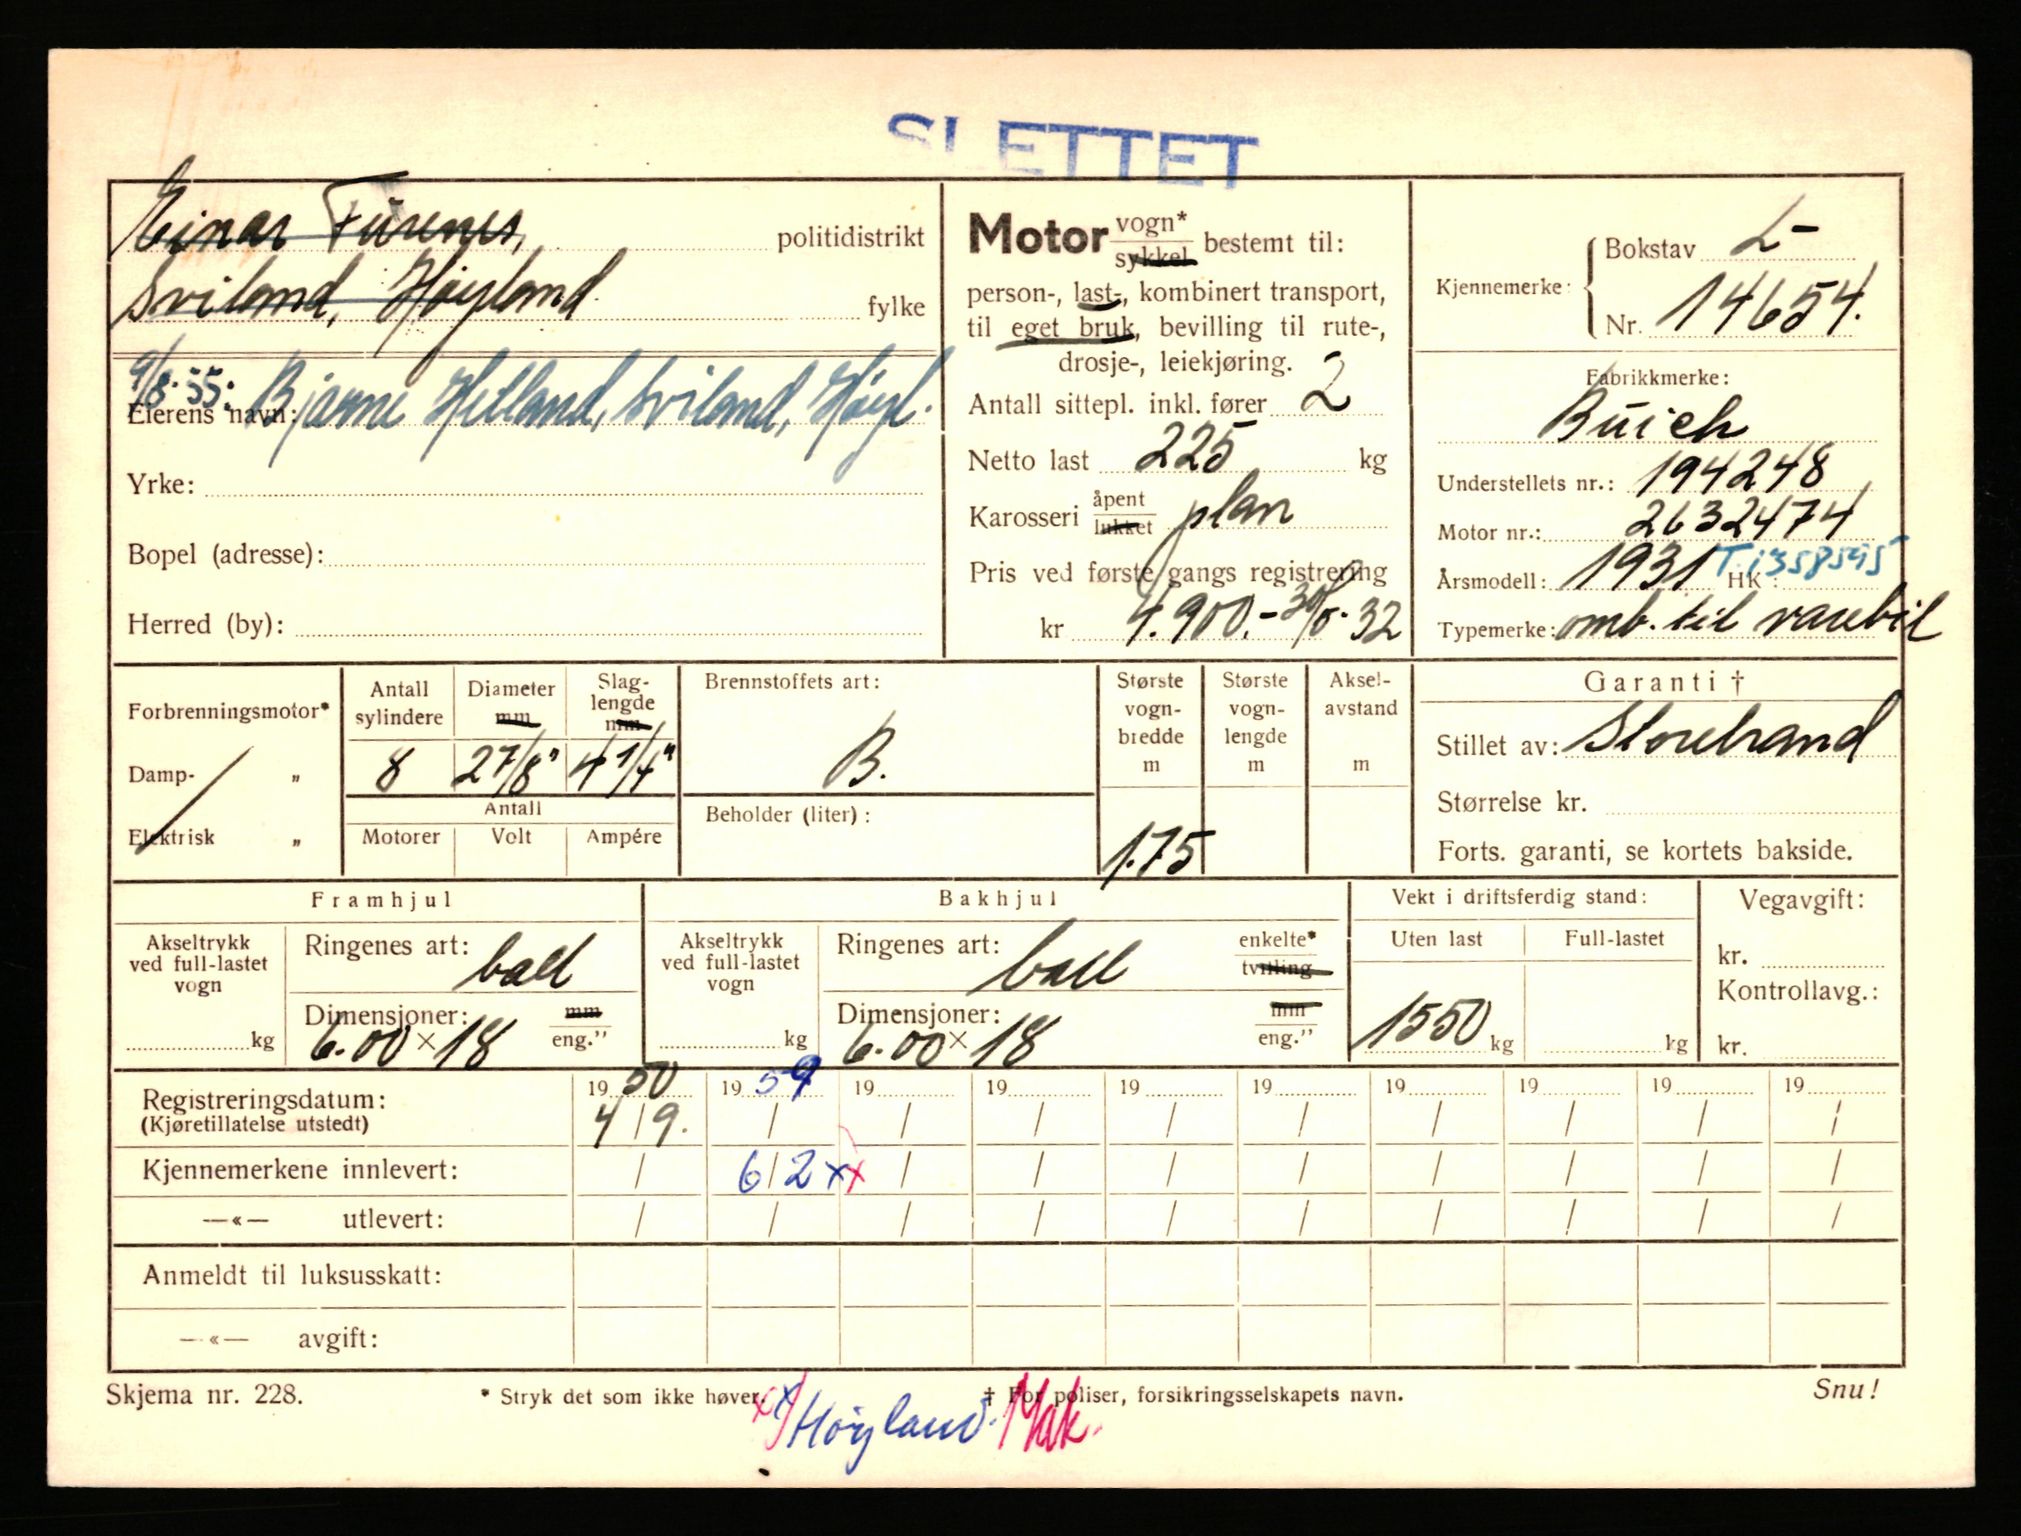 SLETTET
Einar Furenes, politidistrikt
Sviland, Høyland fylke
9/8-55: Bjarne Helland, Sviland, Høyl.
Eierens navn:
Yrke:
Bopel (adresse):
Herred (by):
Motor vogn* sykkel bestemt til:
person-, last-, kombinert transport,
til eget bruk, bevilling til rute-,
drosje-, leiekjøring.
Antall sittepl. inkl. fører 2
Netto last 225 kg
Karosseri åpent lukket plan
Pris ved første gangs registrering
kr 4.900.- 30/5-32
Kjennemerke: Bokstav L-
Nr. 14654.
Fabrikkmerke:
Buick
Understellets nr.: 194248
Motor nr.: 2632474
Årsmodell: 1931 HK: T.1358595
Typemerke: omb. til varebil
Forbrenningsmotor*
Damp- „
Elektrisk „
Antall sylindere 8
Diameter mm 2 7/8"
Slaglengde mm 4 1/4"
Antall
Motorer Volt Ampére
Brennstoffets art:
B.
Beholder (liter):
Største vognbredde m 1.75
Største vognlengde m
Akselavstand m
Garanti †
Stillet av: Storebrand
Størrelse kr.
Forts. garanti, se kortets bakside.
Framhjul
Akseltrykk ved full-lastet vogn kg
Ringenes art: ball
Dimensjoner: mm
6.00 x 18 eng."
Bakhjul
Akseltrykk ved full-lastet vogn kg
Ringenes art: ball enkelte* tvilling
Dimensjoner: mm
6.00 x 18 eng."
Vekt i driftsferdig stand:
Uten last Full-lastet
1550 kg kg
Vegavgift:
kr.
Kontrollavg.:
kr.
19 50 19 59 19 19 19 19 19 19 19 19
Registreringsdatum: 4/9. / / / / / / / / /
(Kjøretillatelse utstedt)
Kjennemerkene innlevert: / 6/2 xx / / / / / / / /
—«— utlevert: / / / / / / / / / /
Anmeldt til luksusskatt:
—«— avgift:
Skjema nr. 228. * Stryk det som ikke høver. † For poliser, forsikringsselskapets navn. Snu!
x x/ Høyland. Mak.